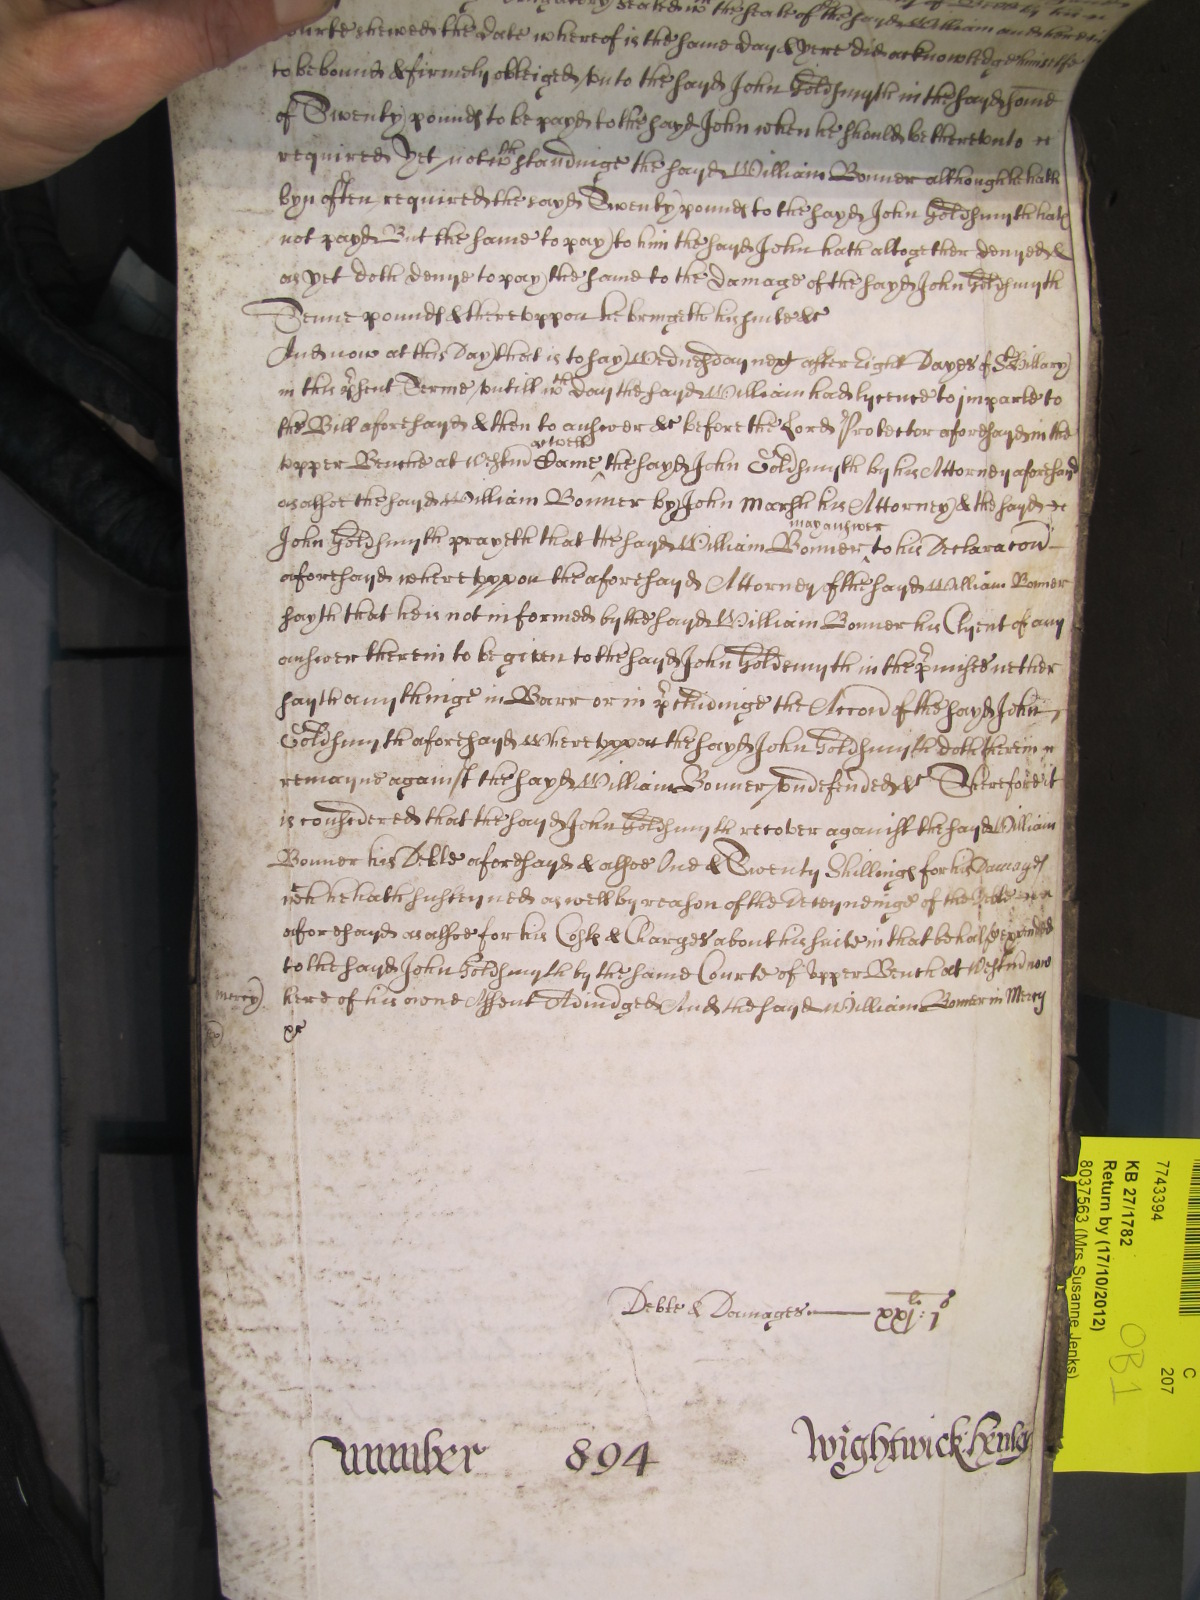 sealed wth the seale of the sayd William and here in
Courte shewed the date whereof is the same day & yere did acknowledge himselfe
to be bound & firmely obleiged vnto the sayd John Goldsmyth in the sayd some
of Twenty pounds to be payd to the sayd John when he should be therevnto
required Yet notwthstandinge the sayd William Bonner although he hath
byn often required the sayd Twenty pounds to the sayd John Goldsmyth hath
not payd But the same to pay to him the sayd John hath altogether denyed &
as yet doth denye to pay the same to the damage of the sayd John Goldsmyth
Tenne pounds & therevppon he bringeth his suite &c
And now at this Day that is to say Wednesday next after Eight Dayes of St Hillary
in this prsent Terme vntill wch day the sayd William had lycence to imparle to
the Bill aforesayd & then to answer &c before the Lord Protector aforesayd in the
vpper Benche at Westmr Came as well the sayd John Goldsmyth by his Attorney aforesayd
as alsoe the sayd William Bonner by John Marsh his Attorney & the sayd
John Goldsmyth prayeth that the sayd William Bonner may answer to his Declaracon
aforesayd wherevppon the aforesayd Attorney of the sayd William Bonner
sayth that he is not informed by the sayd William Bonner his Clyent of any
answer therein to be given to the sayd John Goldsmyth in the prmises nether
sayth any thinge in Barr or in prcludinge the Accon of the sayd John
Goldsmyth aforesayd Wherevppon the sayd John Goldsmyth doth therein
remayne against the sayd William Bonner vndefended &c Therefore it
is considered that the sayd John Goldsmyth recover against the sayd William
Bonner his Debte aforesayd & alsoe One & Twenty Shillings for his Damages
wch he hath susteyned as well by reason of the deteyneinge of the Debte
aforesayd as alsoe for his Costs & Charges about his suite in that behalf expended
to the sayd John Goldsmyth by the same Courte of vpper Bench at Westmr now
mercy
here of his owne Assent Adiudged And the sayd William Bonner in Mercy
&c
Debte & Damages xxjl: js
Number 894 Wightwick: Henley
7743394 C 207
KB 27/1782
Return by (17/10/2012)
8037563 (Mrs Susanne Jenks)
OB1